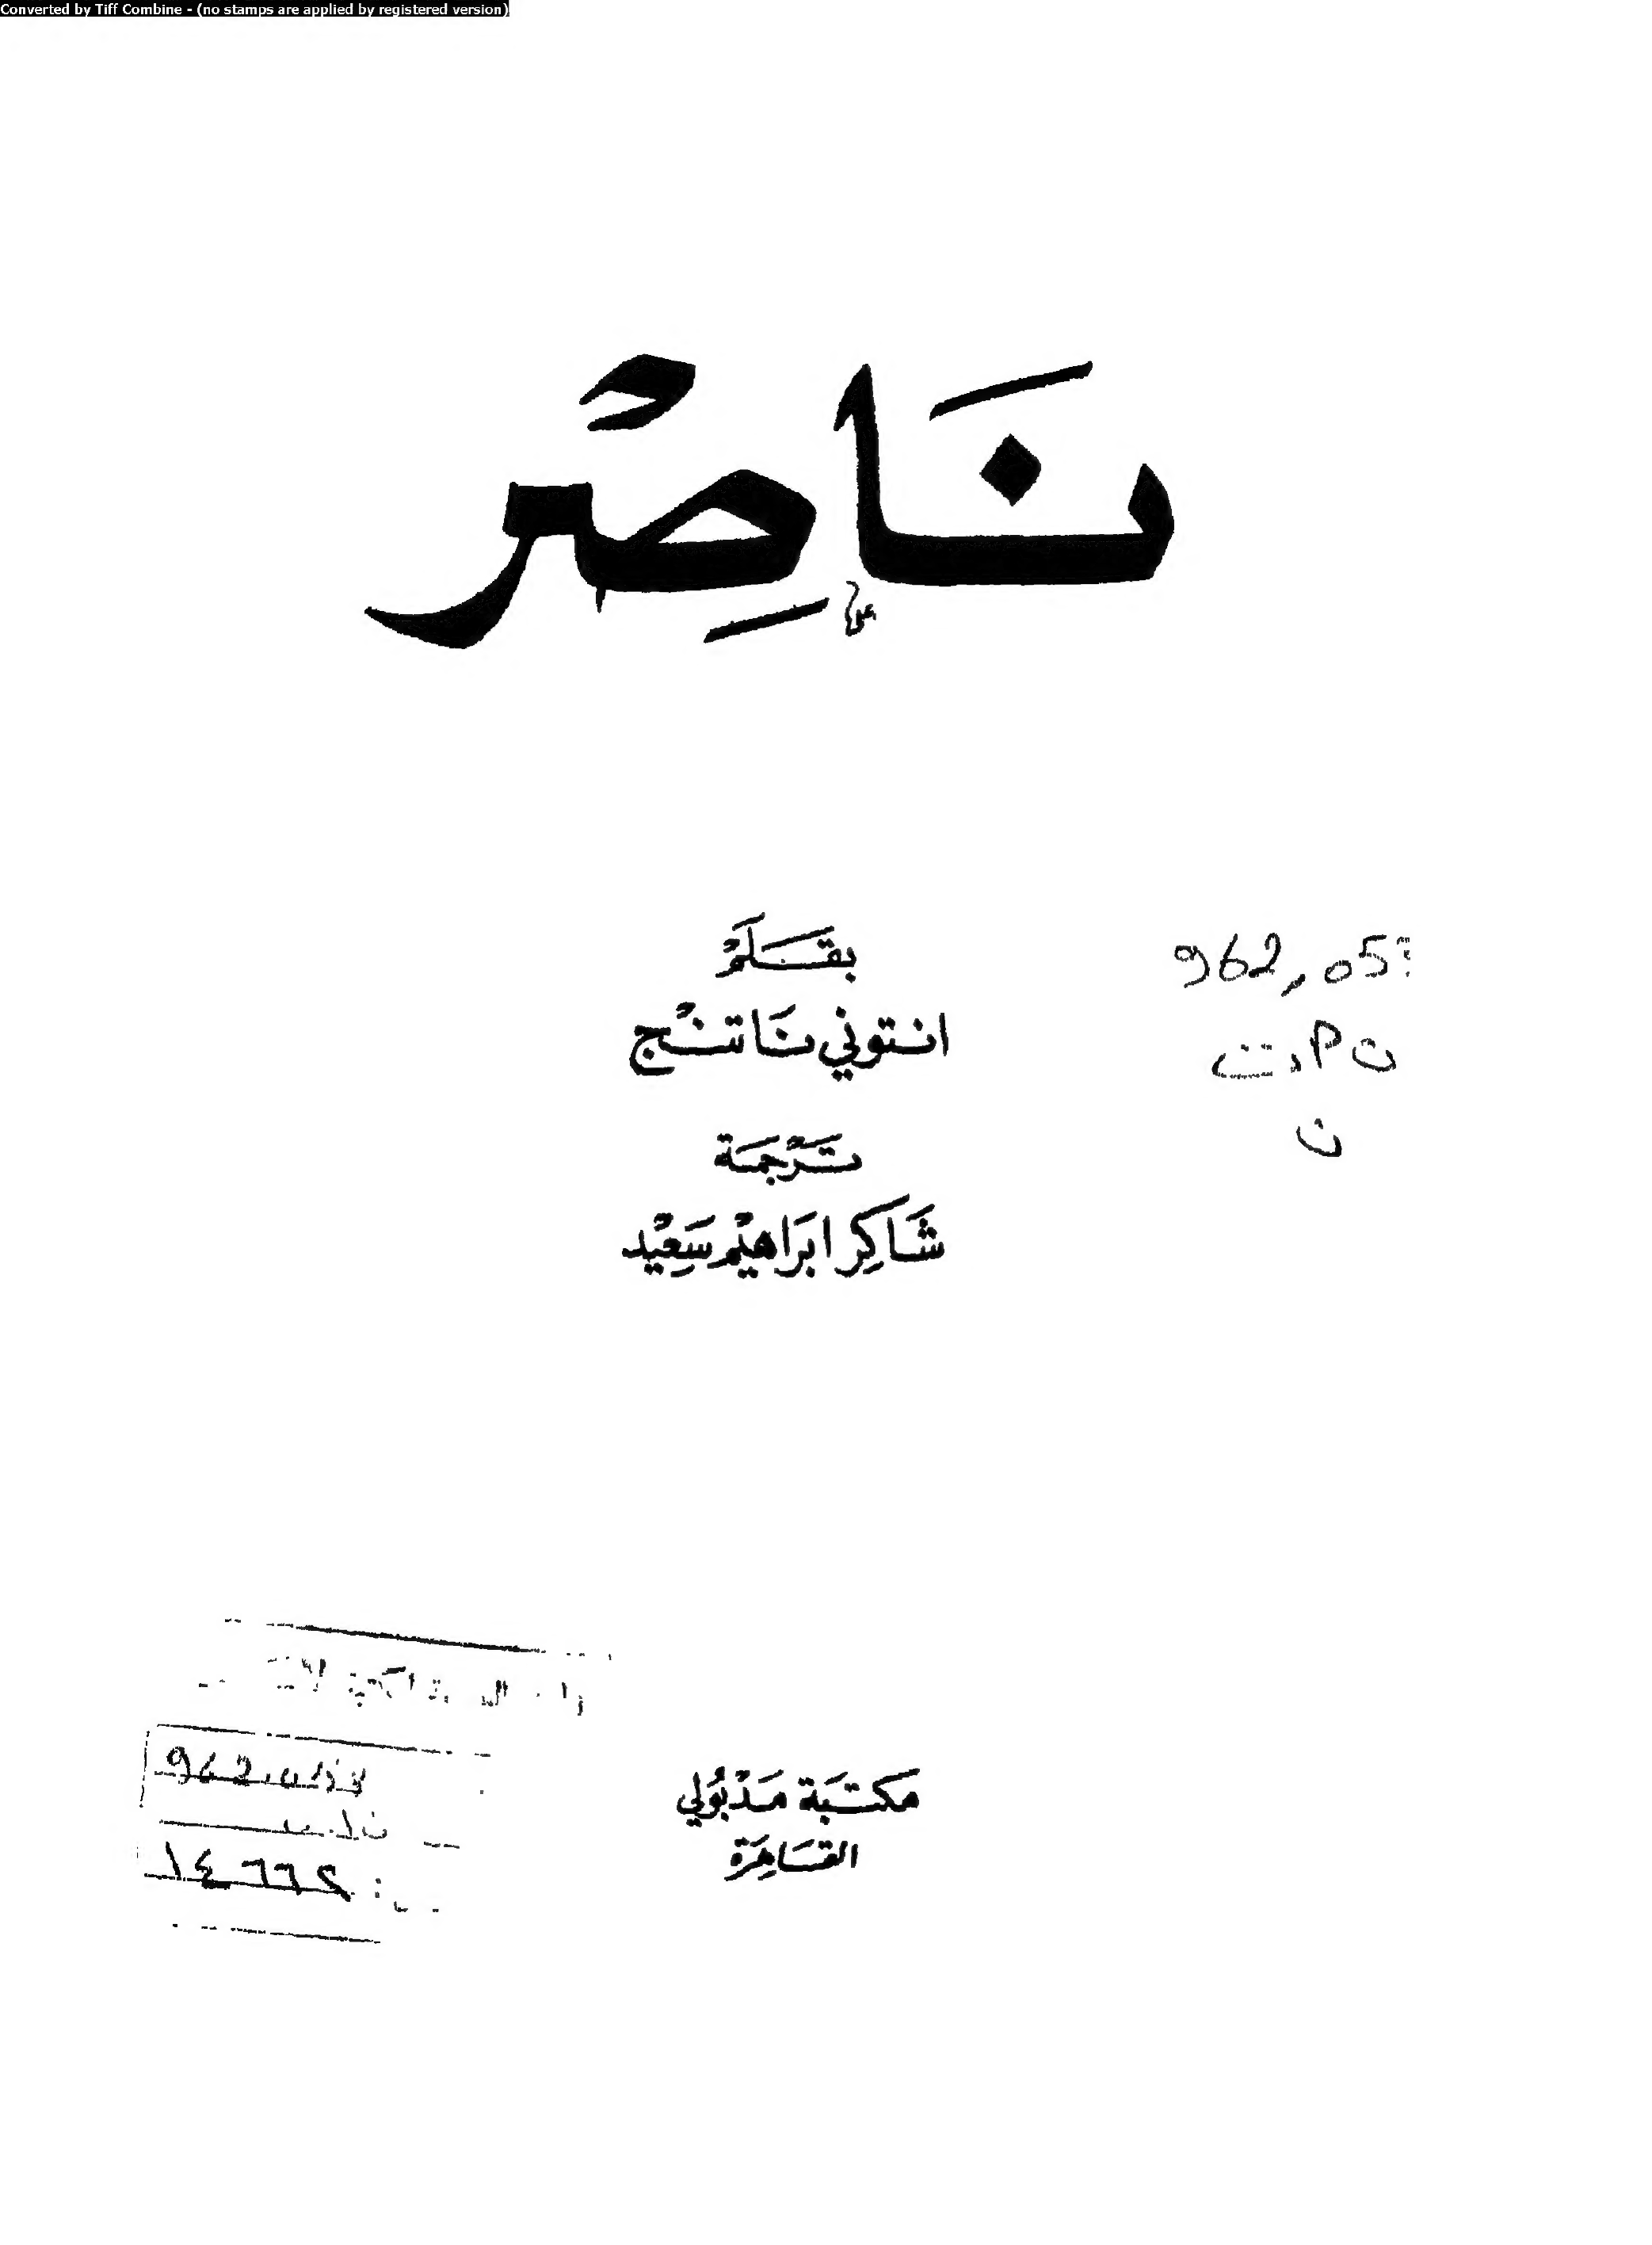 Converted by Tiff Combine - (no stamps are applied by registered version)
نَاصِرْ
بقَلَمْ
انتوني نَاتنْج
تَرْجَمَة
شَاكِر ابرَاهيْم سَعِيْد
962,053
ن
مَكتَبَة مَدْبُولي
القَاهِرَة
962.053
١٤٦٦٢